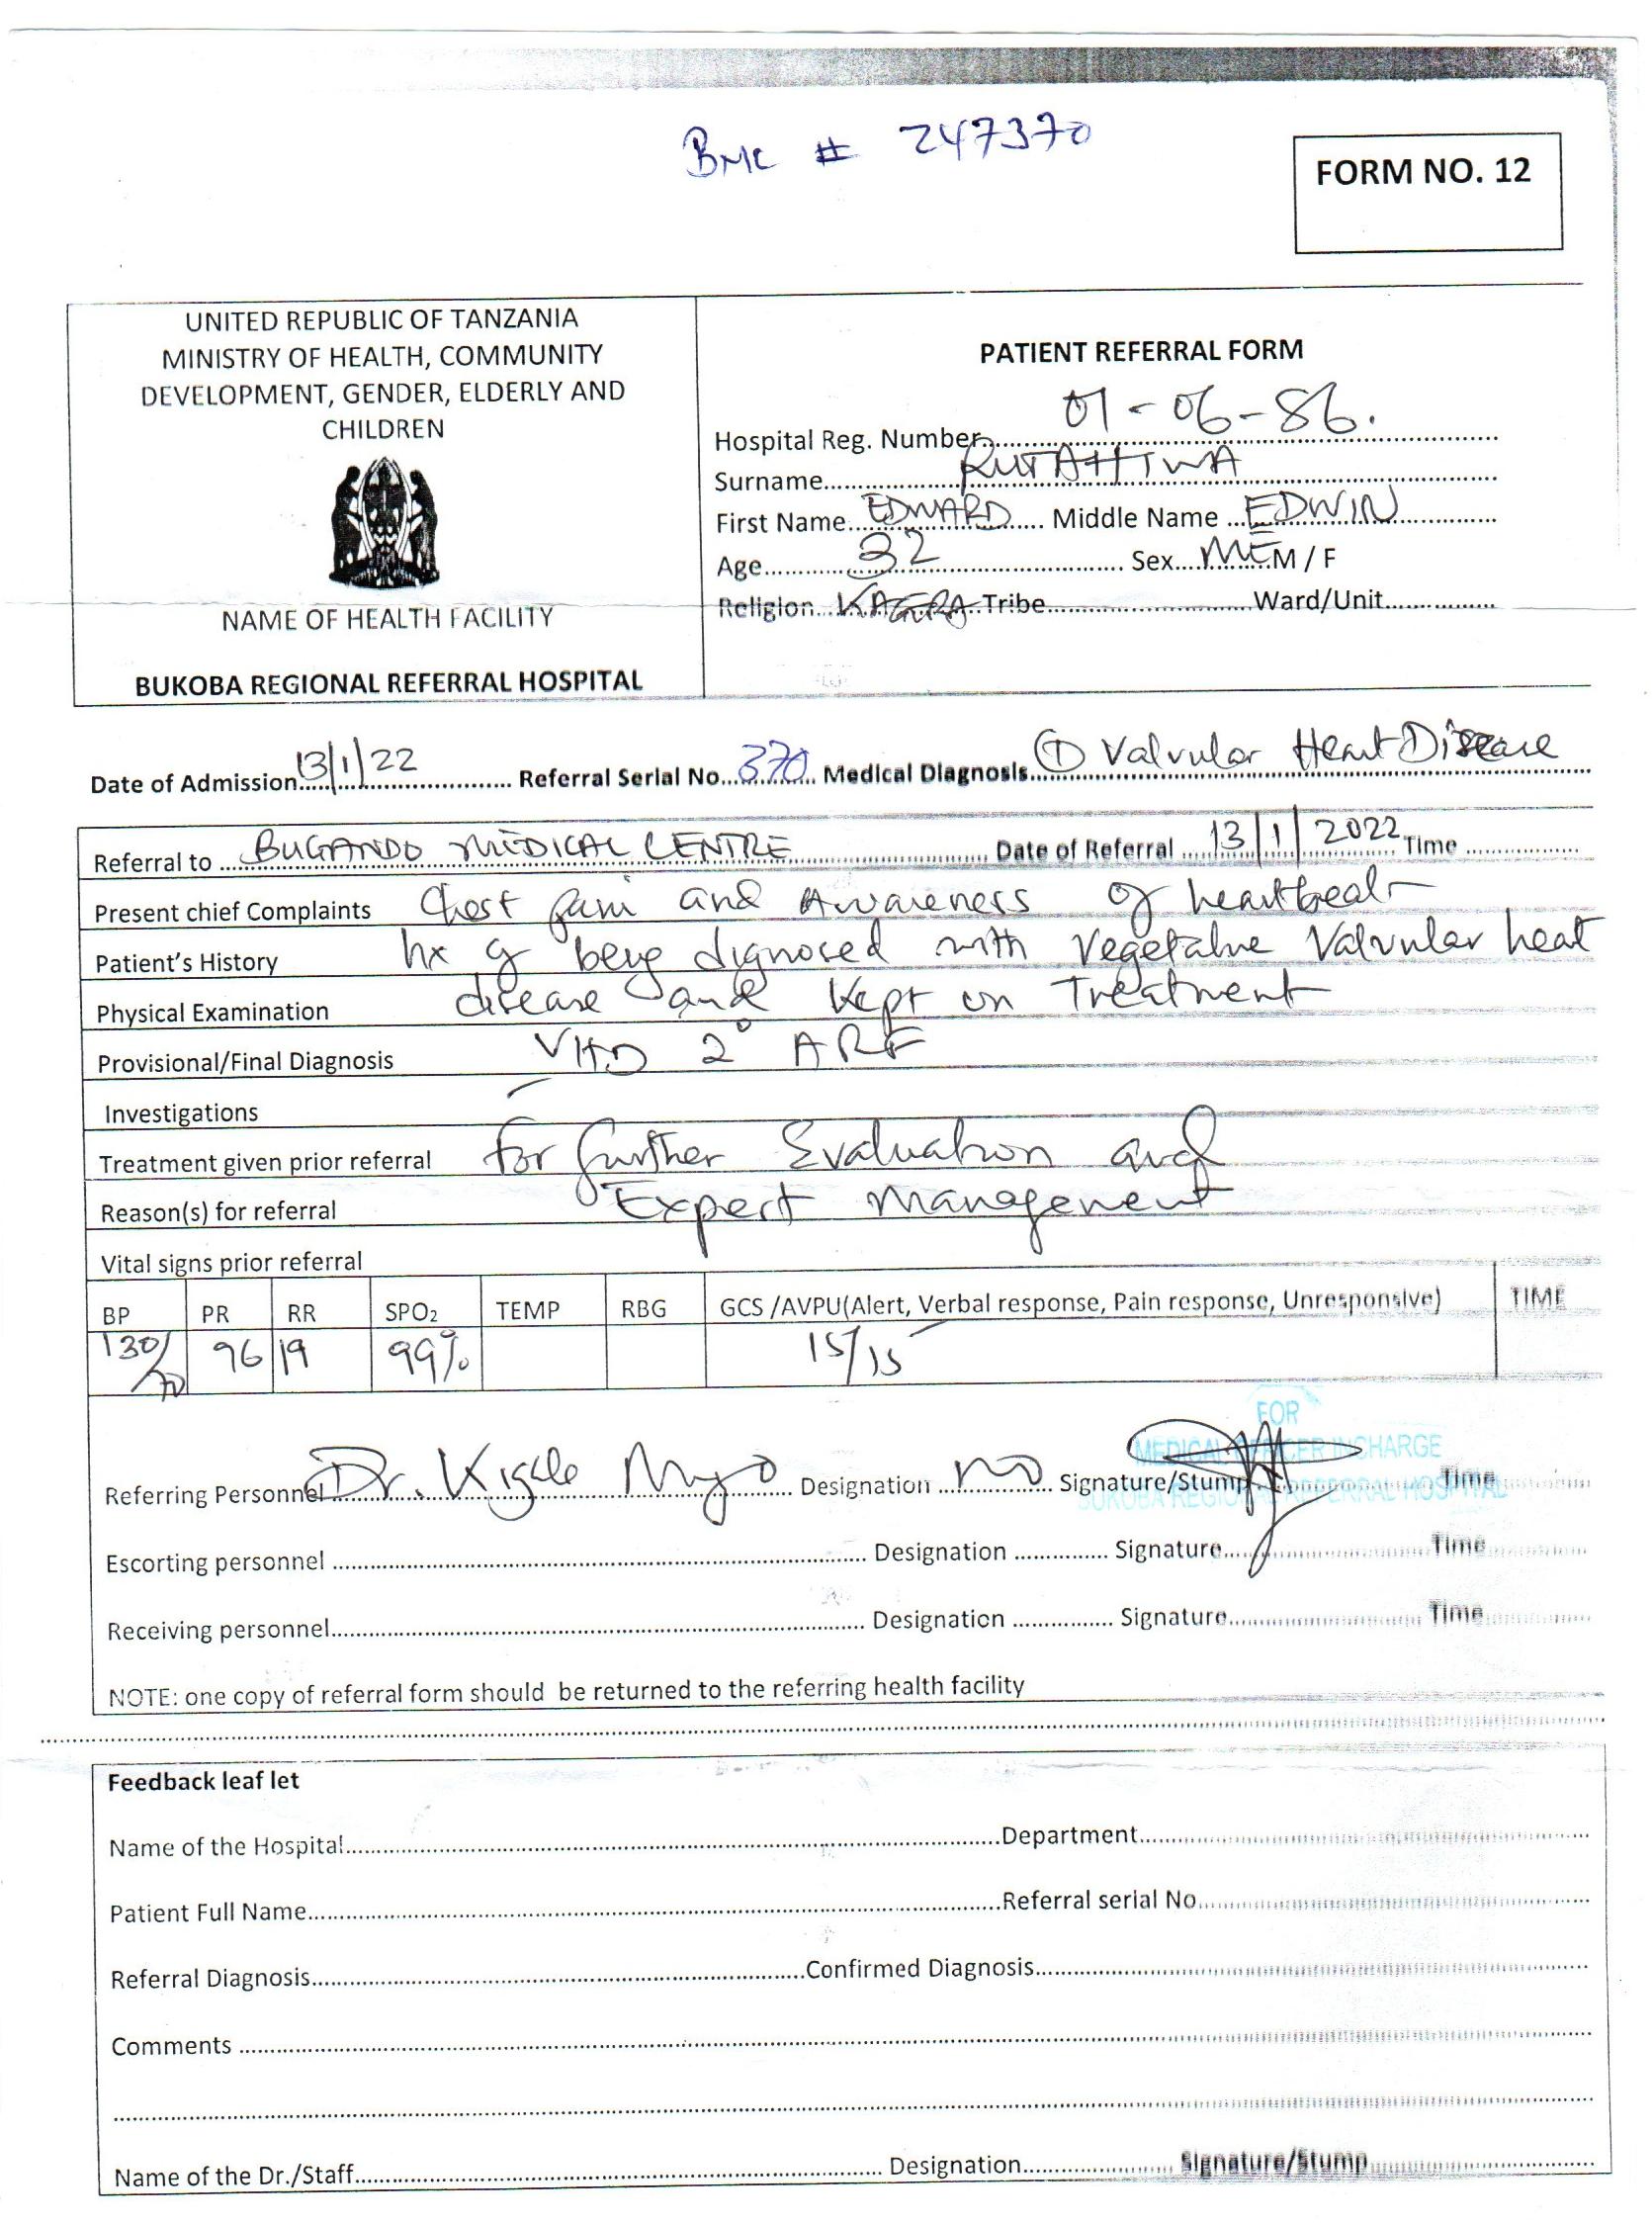 BMC # 247370
FORM NO. 12
UNITED REPUBLIC OF TANZANIA
MINISTRY OF HEALTH, COMMUNITY
DEVELOPMENT, GENDER, ELDERLY AND
CHILDREN
NAME OF HEALTH FACILITY
BUKOBA REGIONAL REFERRAL HOSPITAL
PATIENT REFERRAL FORM
Hospital Reg. Number 01-06-86.
Surname RUTAHIWA
First Name EDWARD Middle Name EDWIN
Age 32 Sex ME M / F
Religion KAGERA Tribe Ward/Unit
Date of Admission 13/1/22 Referral Serial No 370 Medical Diagnosis ① Valvular Heart Disease
Referral to BUGANDO MEDICAL CENTRE Date of Referral 13/1/2022 Time
Present chief Complaints Chest pain and Awareness of heartbeat
Patient's History hx of being dignosed with Vegetative Valvular heat
Physical Examination disease and Kept on Treatment
Provisional/Final Diagnosis VHD 2° ARF
Investigations
Treatment given prior referral for further Evaluation and
Reason(s) for referral Expert Management
Vital signs prior referral
BP PR RR SPO2 TEMP RBG GCS /AVPU(Alert, Verbal response, Pain response, Unresponsive) TIME
130/70 96 19 99% 15/15
FOR
MEDICAL OFFICER INCHARGE
BUKOBA REGIONAL REFERRAL HOSPITAL
Referring Personnel Dr. Designation MD Signature/Stump Time
Escorting personnel Designation Signature Time
Receiving personnel Designation Signature Time
NOTE: one copy of referral form should be returned to the referring health facility
Feedback leaf let
Name of the Hospital Department
Patient Full Name Referral serial No
Referral Diagnosis Confirmed Diagnosis
Comments
Name of the Dr./Staff Designation Signature/Stump